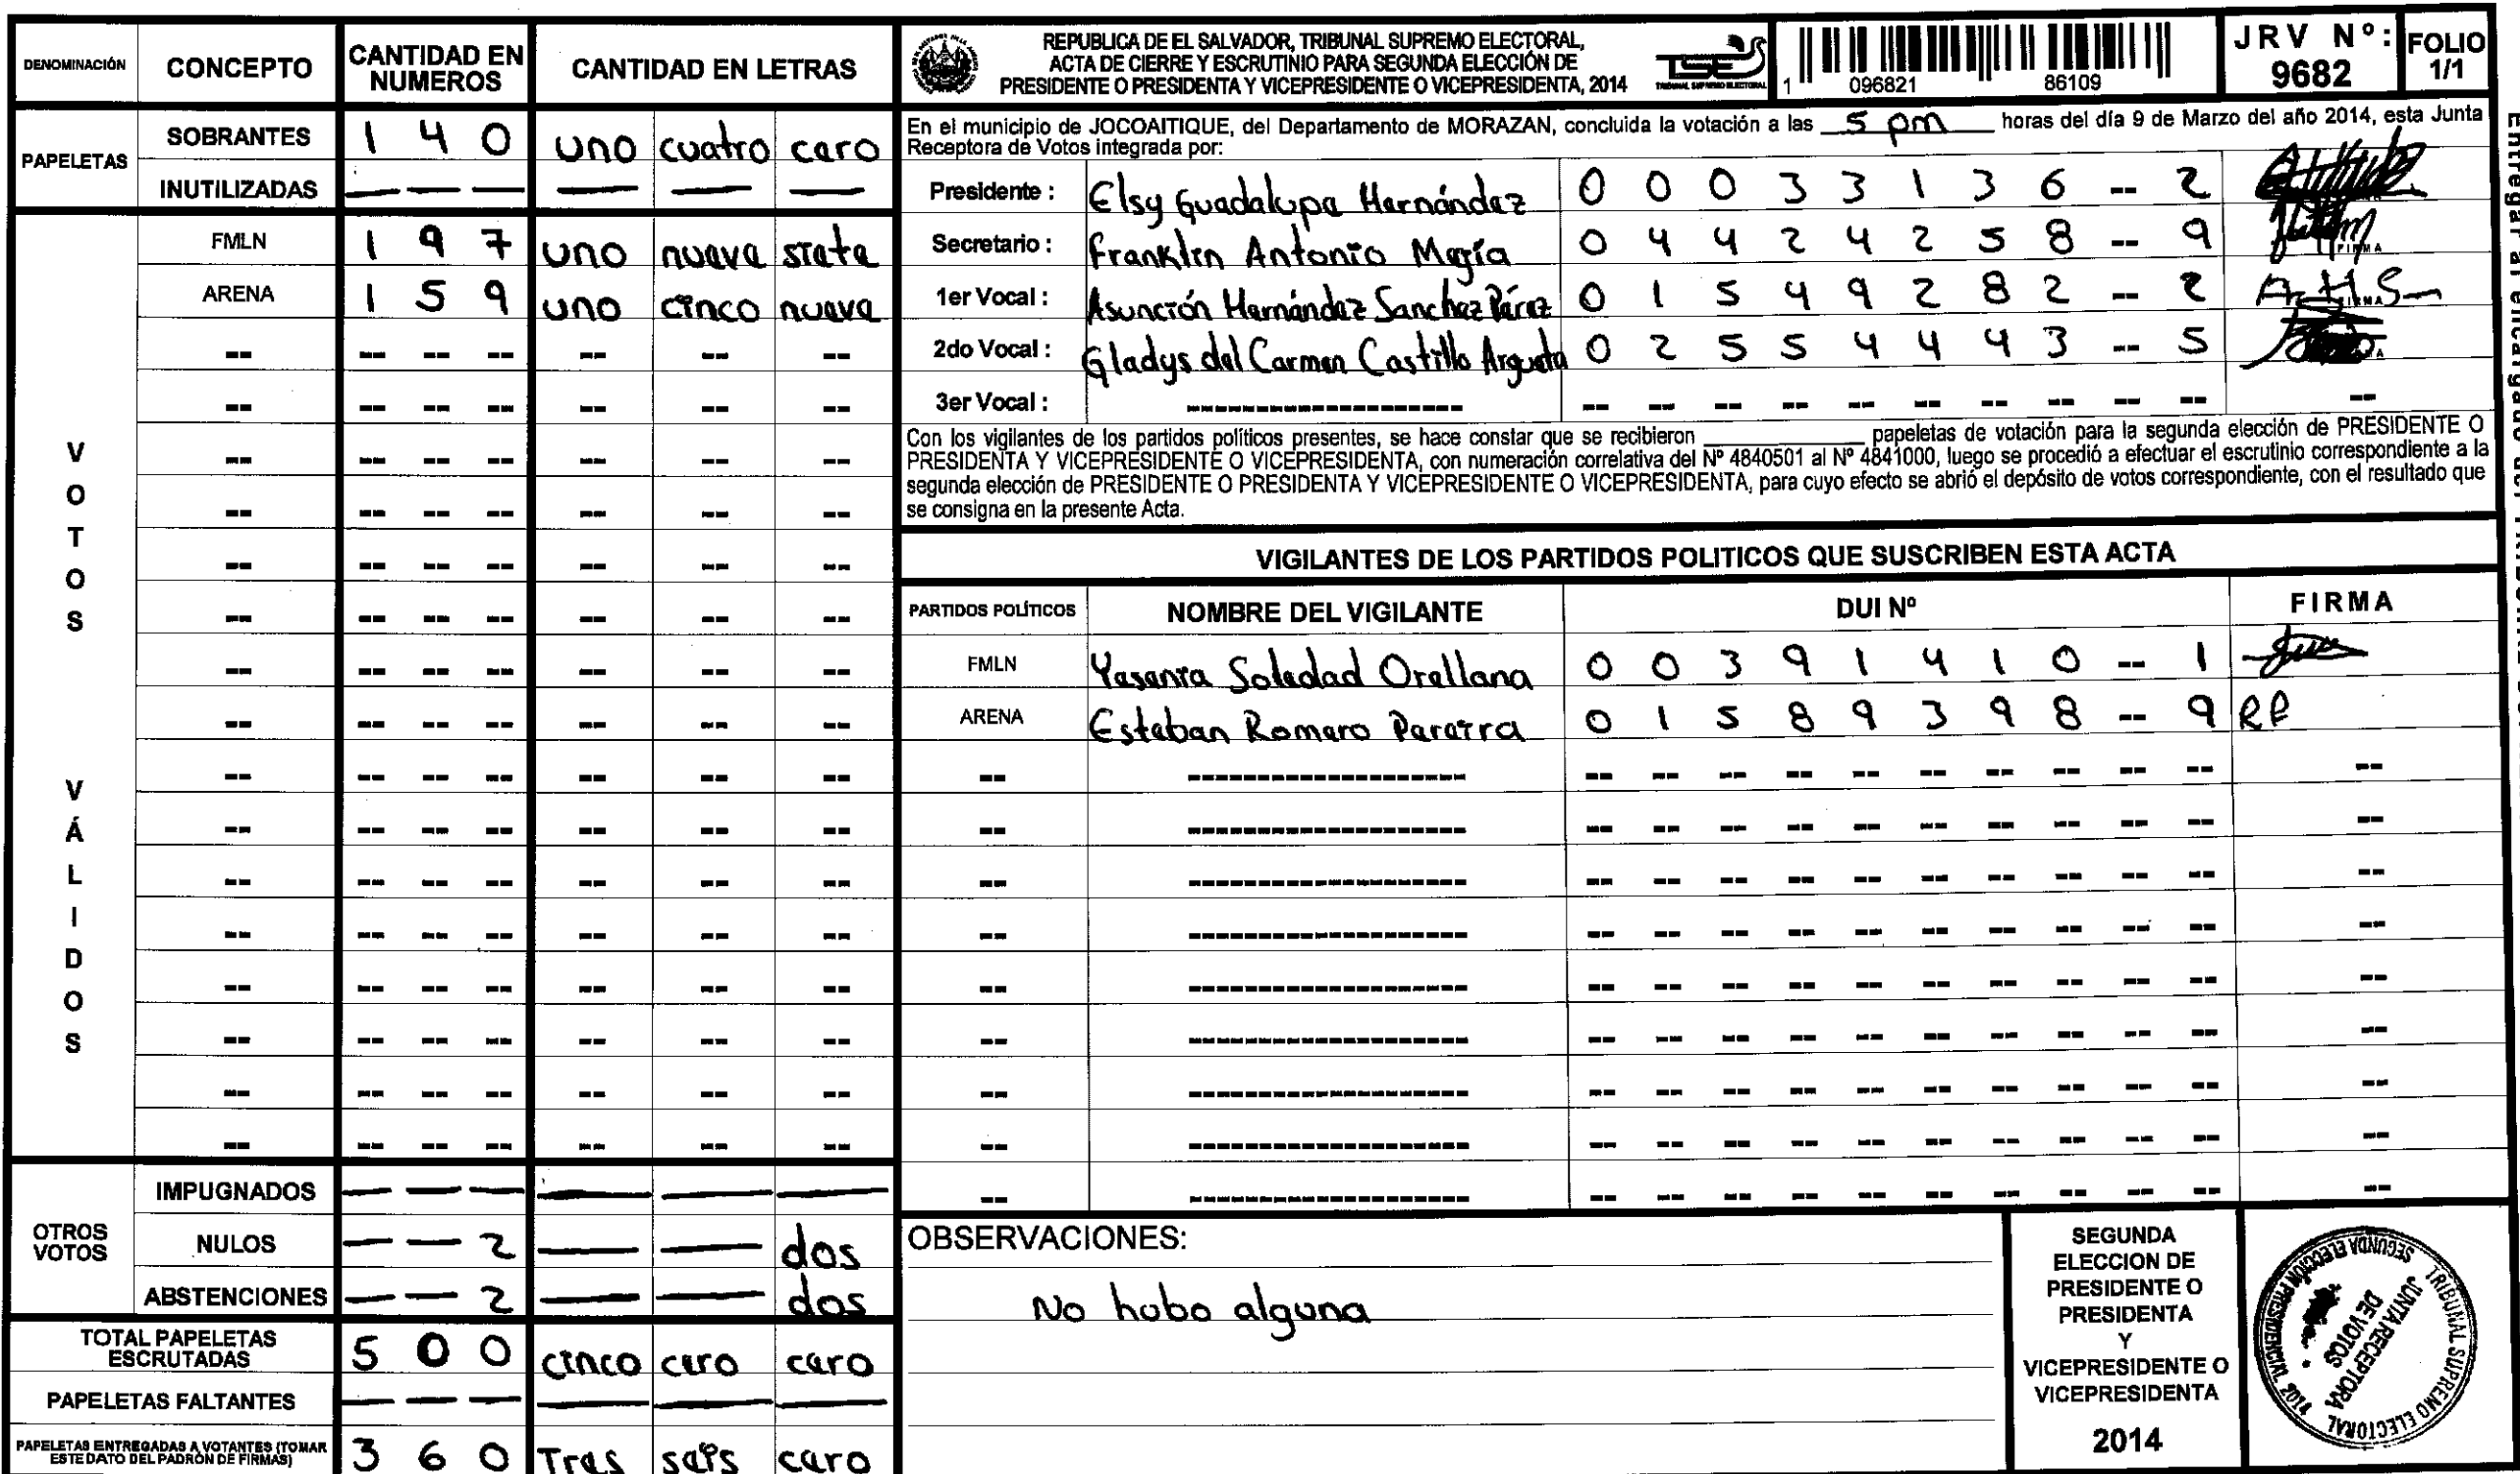 DENOMINACIÓN CONCEPTO CANTIDAD EN NUMEROS CANTIDAD EN LETRAS
PAPELETAS
SOBRANTES 1 4 0 uno cuatro cero
INUTILIZADAS — — — — — —
VOTOS VÁLIDOS
FMLN 1 9 7 uno nueve siete
ARENA 1 5 9 uno cinco nueve
OTROS VOTOS
IMPUGNADOS — — — — — —
NULOS — — 2 — — dos
ABSTENCIONES — — 2 — — dos
TOTAL PAPELETAS ESCRUTADAS 5 0 0 cinco cero cero
PAPELETAS FALTANTES — — — — — —
PAPELETAS ENTREGADAS A VOTANTES (TOMAR ESTE DATO DEL PADRÓN DE FIRMAS) 3 6 0 Tres seis cero
REPUBLICA DE EL SALVADOR, TRIBUNAL SUPREMO ELECTORAL,
ACTA DE CIERRE Y ESCRUTINIO PARA SEGUNDA ELECCIÓN DE
PRESIDENTE O PRESIDENTA Y VICEPRESIDENTE O VICEPRESIDENTA, 2014
TSE
TRIBUNAL SUPREMO ELECTORAL
1 096821 86109
JRV Nº: 9682
FOLIO 1/1
En el municipio de JOCOAITIQUE, del Departamento de MORAZAN, concluida la votación a las 5 pm horas del día 9 de Marzo del año 2014, esta Junta
Receptora de Votos integrada por:
Presidente : Elsy Guadalupe Hernández 0 0 0 3 3 1 3 6 -- 2
Secretario : Franklin Antonio Mejía 0 4 4 2 4 2 5 8 -- 9 FIRMA
1er Vocal : Asunción Hernández Sanchez Pérez 0 1 5 4 9 2 8 2 -- 2
2do Vocal : Gladys del Carmen Castillo Argueta 0 2 5 5 4 4 4 3 -- 5
3er Vocal :
Con los vigilantes de los partidos políticos presentes, se hace constar que se recibieron ____ papeletas de votación para la segunda elección de PRESIDENTE O
PRESIDENTA Y VICEPRESIDENTE O VICEPRESIDENTA, con numeración correlativa del Nº 4840501 al Nº 4841000, luego se procedió a efectuar el escrutinio correspondiente a la
segunda elección de PRESIDENTE O PRESIDENTA Y VICEPRESIDENTE O VICEPRESIDENTA, para cuyo efecto se abrió el depósito de votos correspondiente, con el resultado que
se consigna en la presente Acta.
VIGILANTES DE LOS PARTIDOS POLITICOS QUE SUSCRIBEN ESTA ACTA
PARTIDOS POLÍTICOS NOMBRE DEL VIGILANTE DUI Nº FIRMA
FMLN Yesenia Soledad Orellana 0 0 3 9 1 4 1 0 -- 1
ARENA Esteban Romero Pereira 0 1 5 8 9 3 9 8 -- 9 RP
OBSERVACIONES:
No hubo alguna
SEGUNDA
ELECCION DE
PRESIDENTE O
PRESIDENTA
Y
VICEPRESIDENTE O
VICEPRESIDENTA
2014
TRIBUNAL SUPREMO ELECTORAL
SEGUNDA ELECCIÓN PRESIDENCIAL 2014
JUNTA RECEPTORA
DE VOTOS
Entregar al encargado del